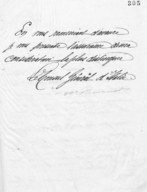 205
En vous remerciant d'avance
je vous présente l'assurance de ma
considération la plus distinguée
Le Consul Général d'Italie